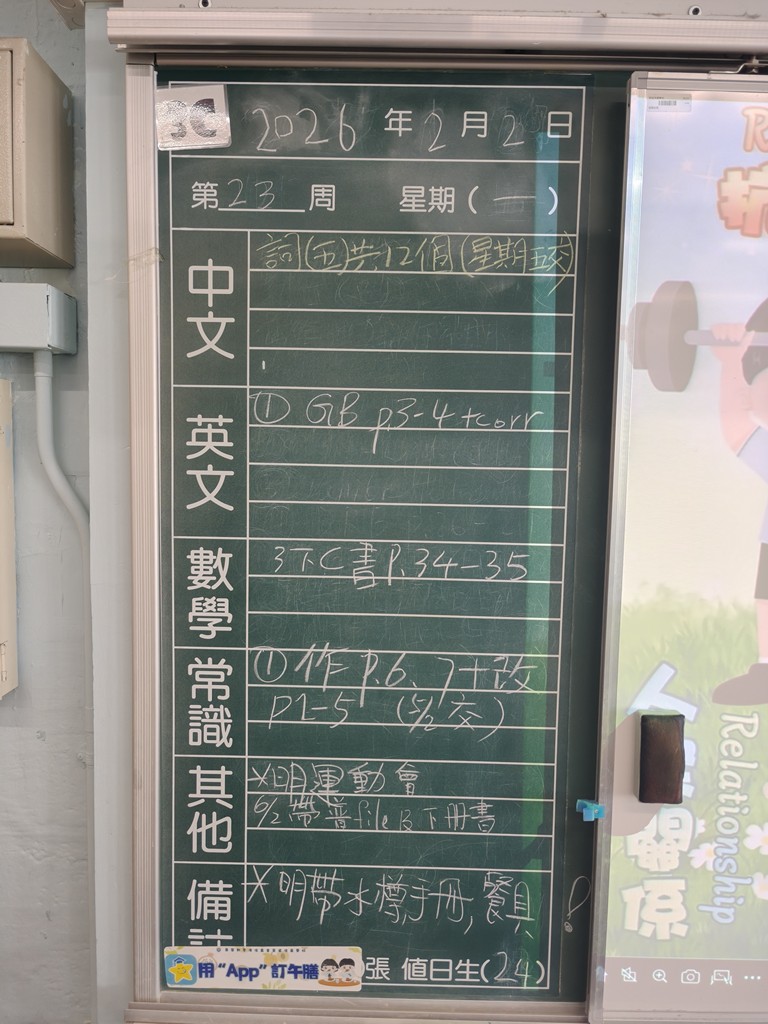 3C
2026 年 2 月 2 日
第 23 周 星期(一)
中文
詞(五)共12個(星期五交)
英文
① GB p3-4 +corr
數學
3下C書P.34-35
常識
① 作 P.6、7+改
P1-5 (5/2 交)
其他
*明運動會
6/2 帶普file及下冊書
備註
*明帶水樽,手冊,餐具
用“App”訂午膳
張 值日生(24)
人際關係
Relationship